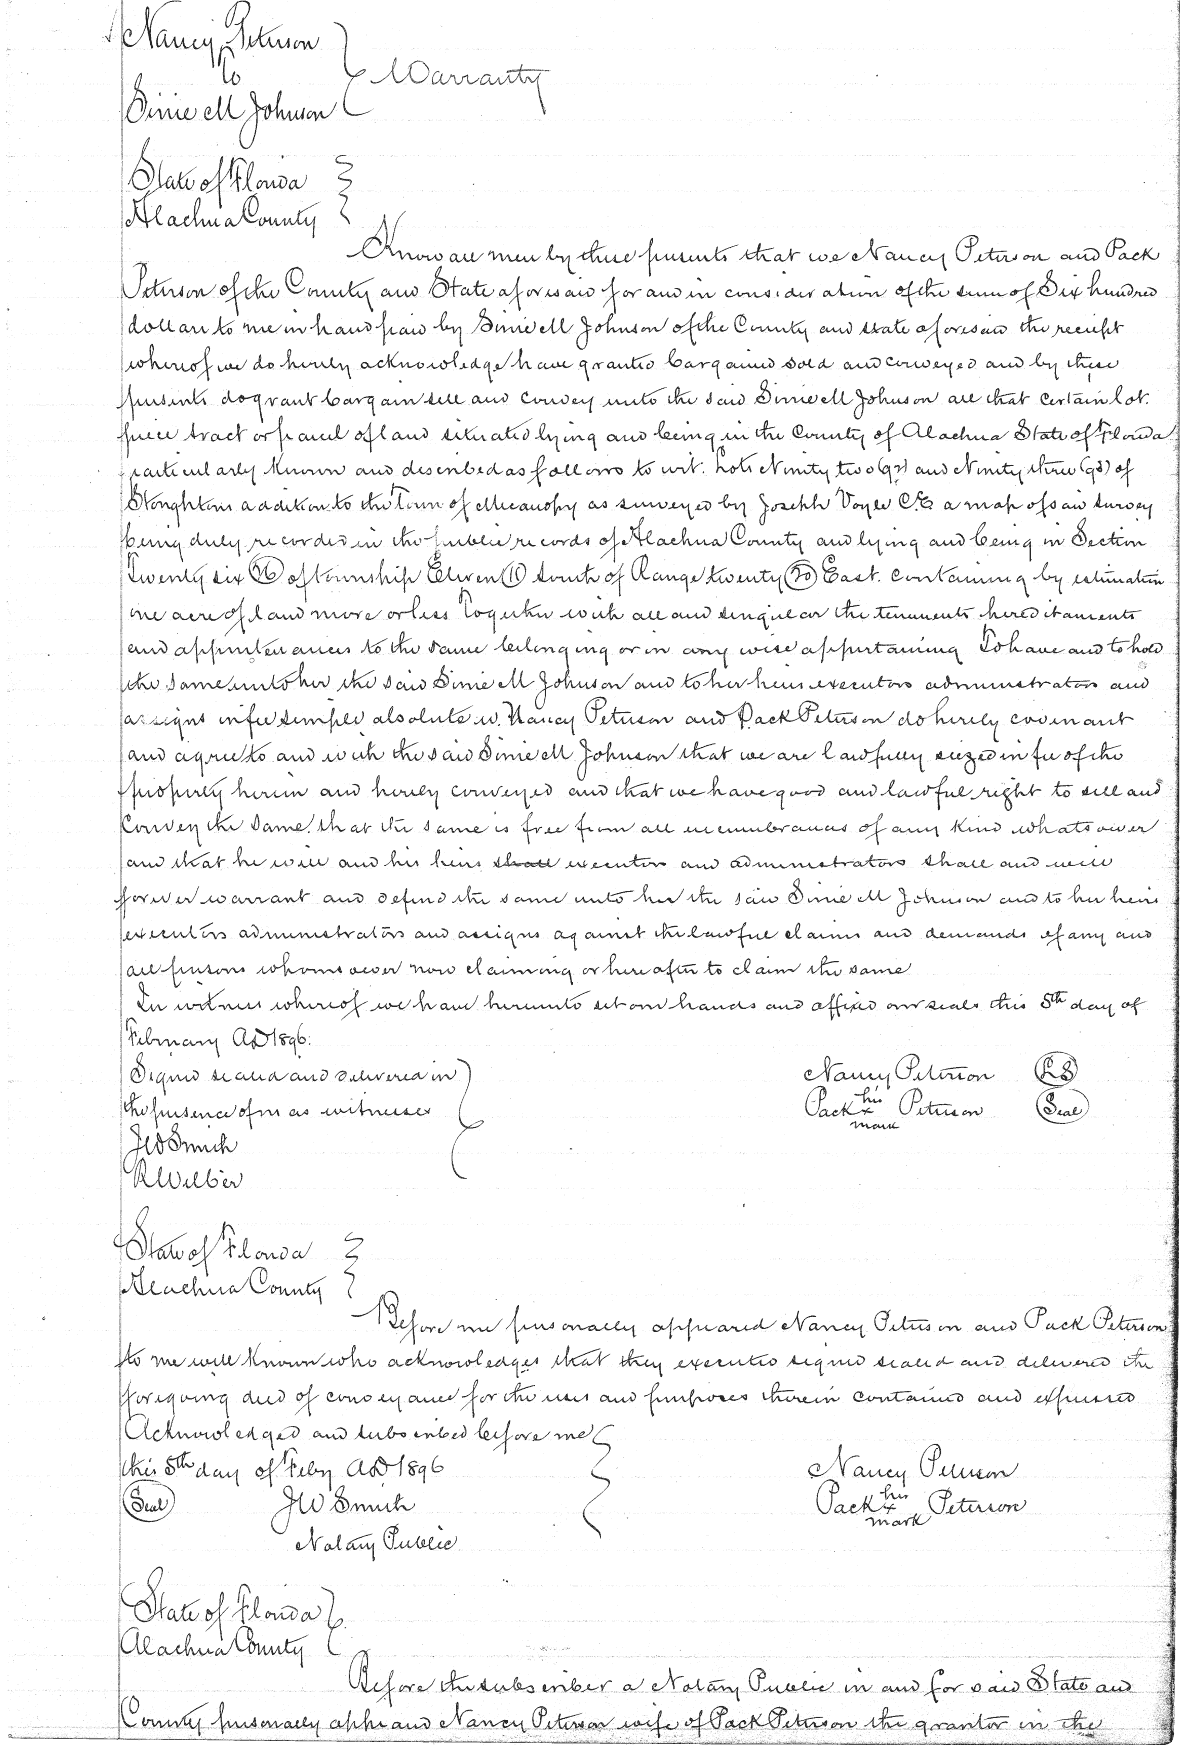 Nancy Peterson
to
Sinie M Johnson
Warranty
State of Florida
Alachua County
Know all men by these presents that we Nancy Peterson and Pack
Peterson of the County and State aforesaid for and in consideration of the sum of Six hundred
dollars to me in hand paid by Sinie M Johnson of the County and state aforesaid the receipt
whereof we do hereby acknowledge have granted bargained sold and conveyed and by these
presents do grant bargain sell and convey unto the said Sinie M Johnson all that certain lot
piece tract or parcel of land situated lying and being in the County of Alachua State of Florida
particularly known and described as follows to wit. Lots Ninity two (92) and Ninity three (93) of
Stoughtons addition to the Town of Micanopy as surveyed by Joseph Voyle C.E a map of said survey
being duly recorded in the public records of Alachua County and lying and being in Section
Twenty six (26) of township Eleven (11) South of Range twenty (20) East. containing by estimation
one acre of land more or less Together with all and singular the tenements hereditaments
and appurtenances to the same belonging or in any wise appertaining To have and to hold
the same unto her the said Sinie M Johnson and to her heirs executors administrators and
assigns in fee simple absolute w. Nancy Peterson and Pack Peterson do hereby covenant
and agree to and with the said Sinie M Johnson that we are lawfully seized in fee of the
property herein and hereby conveyed and that we have good and lawful right to sell and
Convey the same. that the same is free from all incumbrances of any kind whatsoever
and that he will and his heirs shall executors and administrators shall and will
forever warrant and defend the same unto her the said Sinie M Johnson and to her heirs
executors administrators and assigns against the lawful claims and demands of any and
all persons whomsoever now claiming or hereafter to claim the same
In witness whereof we have hereunto set our hands and affixed our seals this 8th day of
February AD 1896.
Signed sealed and delivered in
the presence of us as witnesses
Nancy Peterson LS
his
Pack x Peterson Seal
mark
JW Smith
R Wilber
State of Florida
Alachua County
Before me personally appeared Nancy Peterson and Pack Peterson
to me well known who acknowledges that they executed signed sealed and delivered the
foregoing deed of conveyance for the uses and purposes therein contained and expressed
Acknowledged and subscribed before me
this 8th day of Feby AD 1896
Nancy Peterson
his
Seal JW Smith Pack x Peterson
mark
Notary Public
State of Florida
Alachua County
Before the subscriber a Notary Public in and for said State and
County personally appeared Nancy Peterson wife of Pack Peterson the grantor in the